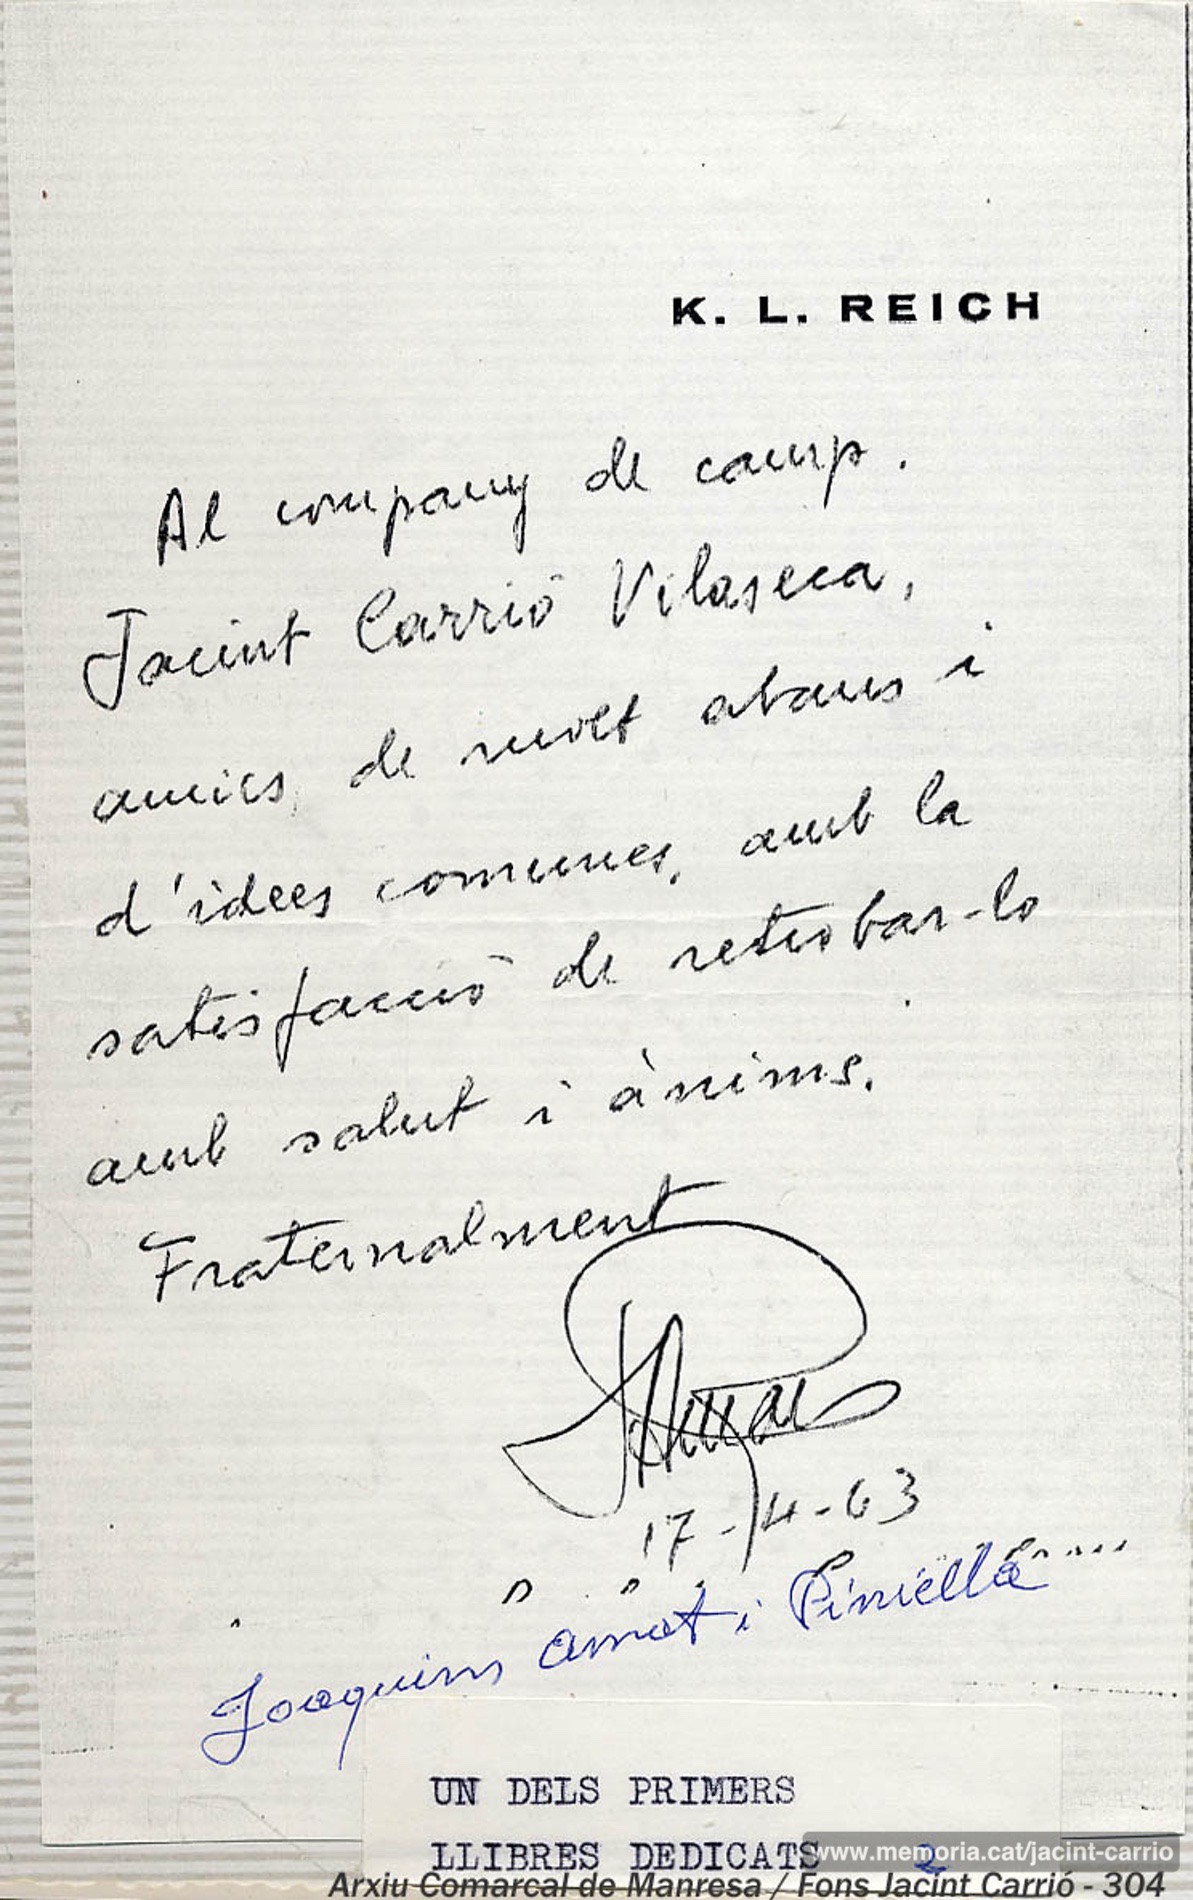 K. L. REICH
Al company de camp.
Jacint Carrió Vilaseca,
amics, de molt abans i
d'idees comunes, amb la
satisfacció de retrobar-lo
amb salut i ànims.
Fraternalment
17-4-63
Joaquim Amat i Piniella
UN DELS PRIMERS
LLIBRES DEDICATS 2
www.memoria.cat/jacint-carrio
Arxiu Comarcal de Manresa / Fons Jacint Carrió - 304